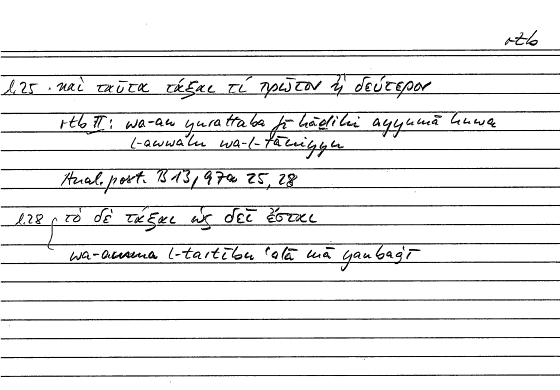 rtb
l.25 · καὶ ταῦτα τάξαι τί πρῶτον ἢ δεύτερον
rtb II: wa-an yurattaba fī hāḏihi ayyumā huwa
l-awwalu wa-l-ṯāniyu
Anal. post. B 13, 97a 25, 28
l.28 τὸ δὲ τάξαι ὡς δεῖ ἔσται
wa-amma l-tartību ʿalā mā yanbaġī